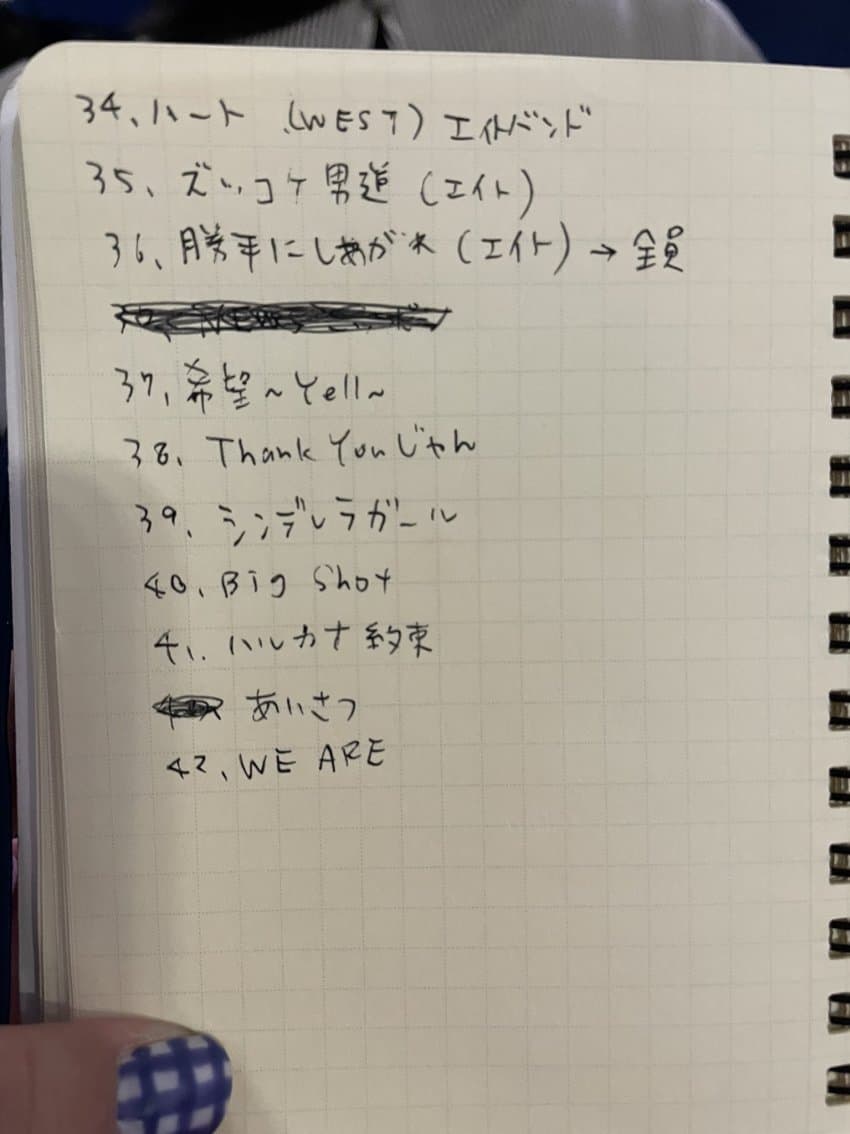 34、ハート (WEST) エイトバンド
35、ズッコケ男道 (エイト)
36、勝手にしあがれ (エイト) → 全員
37、希望～Yell～
38、Thank Youじゃん
39、シンデレラガール
40、Big Shot
41、ハルカナ約束
あいさつ
42、WE ARE